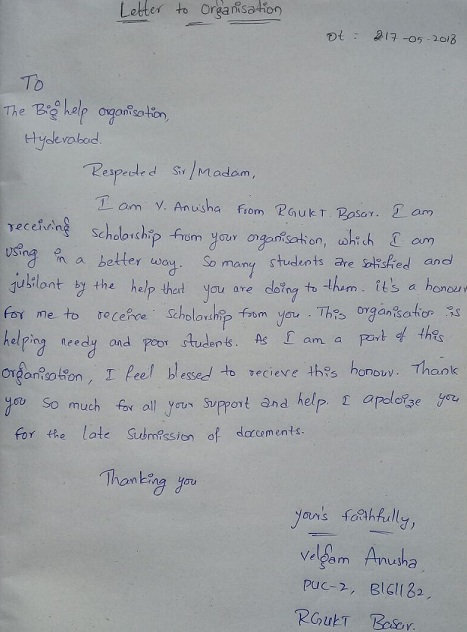 Letter to Organisation
Dt : 217-05-2018
To
The Big help organisation,
Hyderabad.
Respected Sir/Madam,
I am V. Anusha from RGUKT Basar. I am
receiving scholarship from your organisation, which I am
using in a better way. So many students are satisfied and
jubilant by the help that you are doing to them. it's a honour
for me to receive scholarship from you. This organisation is
helping needy and poor students. As I am a part of this
organisation, I feel blessed to recieve this honour. Thank
you so much for all your support and help. I apoloize you
for the late submission of documents.
Thanking you
your's faithfully,
Velgam Anusha
PUC-2, B161182,
RGUKT Basar.